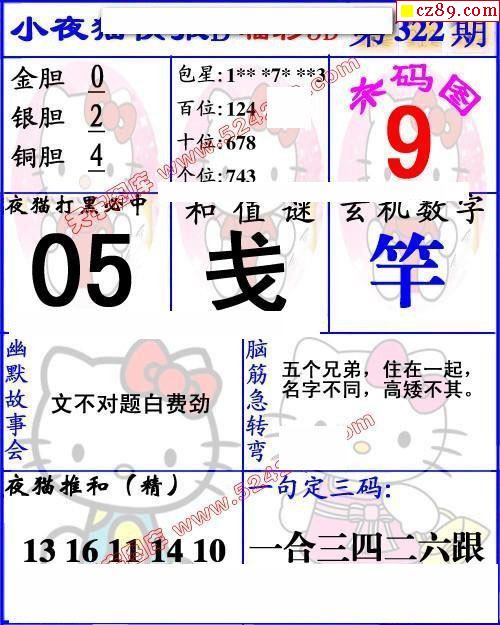 cz89.com
小夜猫
第322期
金胆 0
银胆 2
铜胆 4
包星:1** *7* **3
百位:124
十位:678
个位:743
杀码图
9
夜猫打黑必中
05
和值谜
戋
玄机数字
竿
幽默故事会
文不对题白费劲
脑筋急转弯
五个兄弟，住在一起，
名字不同，高矮不其。
夜猫推和（精）
13 16 11 14 10
一句定三码:
一合三四二六跟